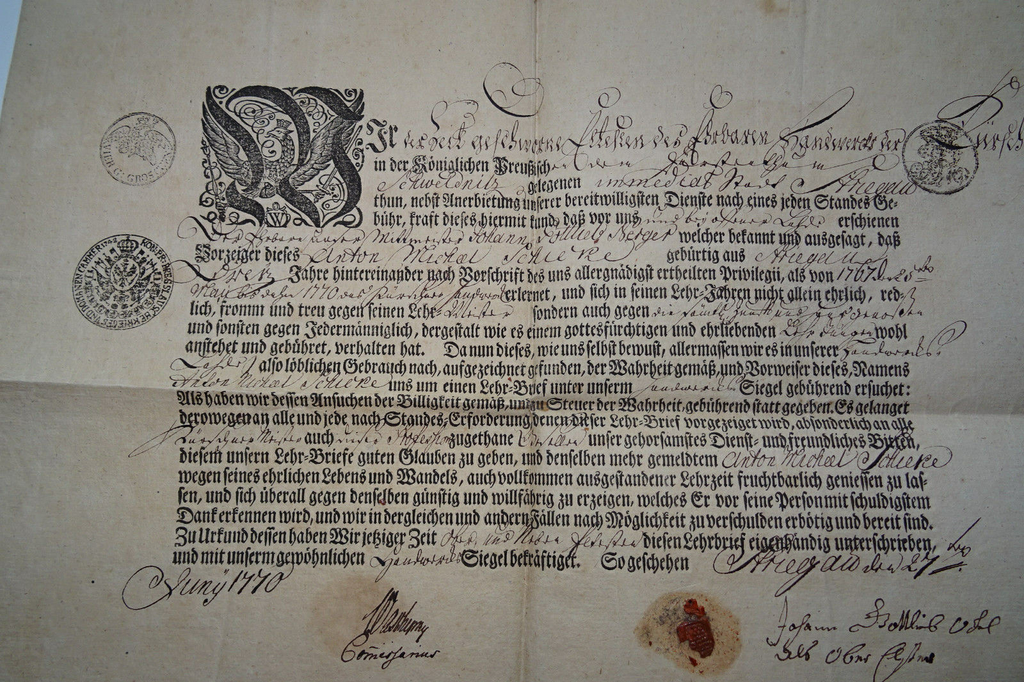 WIr der Zeit geschworne Eltesten des Erbaren Handwercks der Kürsch
in der Königlichen Preußisch
Schweidnitz gelegenen immediat Stadt Striegau
thun, nebst Anerbietung unserer bereitwilligsten Dienste nach eines jeden Standes Ge-
bühr, kraft dieses hiermit kund, daß vor uns und bey offener Lade erschienen
Der Erbare unser Mitmeister Johann Gottlieb Berger welcher bekannt und ausgesagt, daß
Vorzeiger dieses Anton Michael Schieke gebürtig aus Striegau
Drey Jahre hintereinander nach Vorschrift des uns allergnädigst ertheilten Privilegii, als von 1767
1770 das Kürschner Handwerck erlernet, und sich in seinen Lehr-Jahren nicht allein ehrlich, red-
lich, fromm und treu gegen seinen Lehr-Meister sondern auch gegen die
und sonsten gegen Jedermänniglich, dergestalt wie es einem gottesfürchtigen und ehrliebenden Lehr Jungen wohl
anstehet und gebühret, verhalten hat. Da nun dieses, wie uns selbst bewust, allermassen wir es in unserer Handwercks-
Lade also löblichen Gebrauch nach, aufgezeichnet gefunden, der Wahrheit gemäß, und Vorweiser dieses, Namens
Anton Michael Schieke uns um einen Lehr-Brief unter unserm Handwercks Siegel gebührend ersuchet:
Als haben wir dessen Ansuchen der Billigkeit gemäß, und zu Steuer der Wahrheit, gebührend statt gegeben. Es gelanget
derowegen an alle und jede nach Standes-Erforderung, denen dieser Lehr-Brief vorgezeiget wird, absonderlich an alle
Kürschner Meister auch unser Profession zugethane Gesellen unser gehorsamstes Dienst- und freundliches Bitten,
diesem unsern Lehr-Briefe guten Glauben zu geben, und denselben mehr gemeldtem Anton Michael Schieke
wegen seines ehrlichen Lebens und Wandels, auch vollkommen ausgestandener Lehrzeit fruchtbarlich geniessen zu las-
sen, und sich überall gegen denselben günstig und willfährig zu erzeigen, welches Er vor seine Person mit schuldigstem
Dank erkennen wird, und wir in dergleichen und andern Fällen nach Möglichkeit zu verschulden erbötig und bereit sind.
Zu Urkund dessen haben Wir jetziger Zeit Ober und Neben Eltesten diesen Lehrbrief eigenhändig unterschrieben,
und mit unserm gewöhnlichen Handwercks Siegel bekräftiget. So geschehen Striegau den 27
Juny 1770
Commissarius
Johann Gottlieb
als Ober Elster